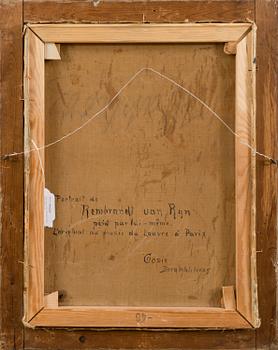 Portrait de
Rembrandt van Rijn
peint par lui-même.
L'original au musée du Louvre à Paris
Copie